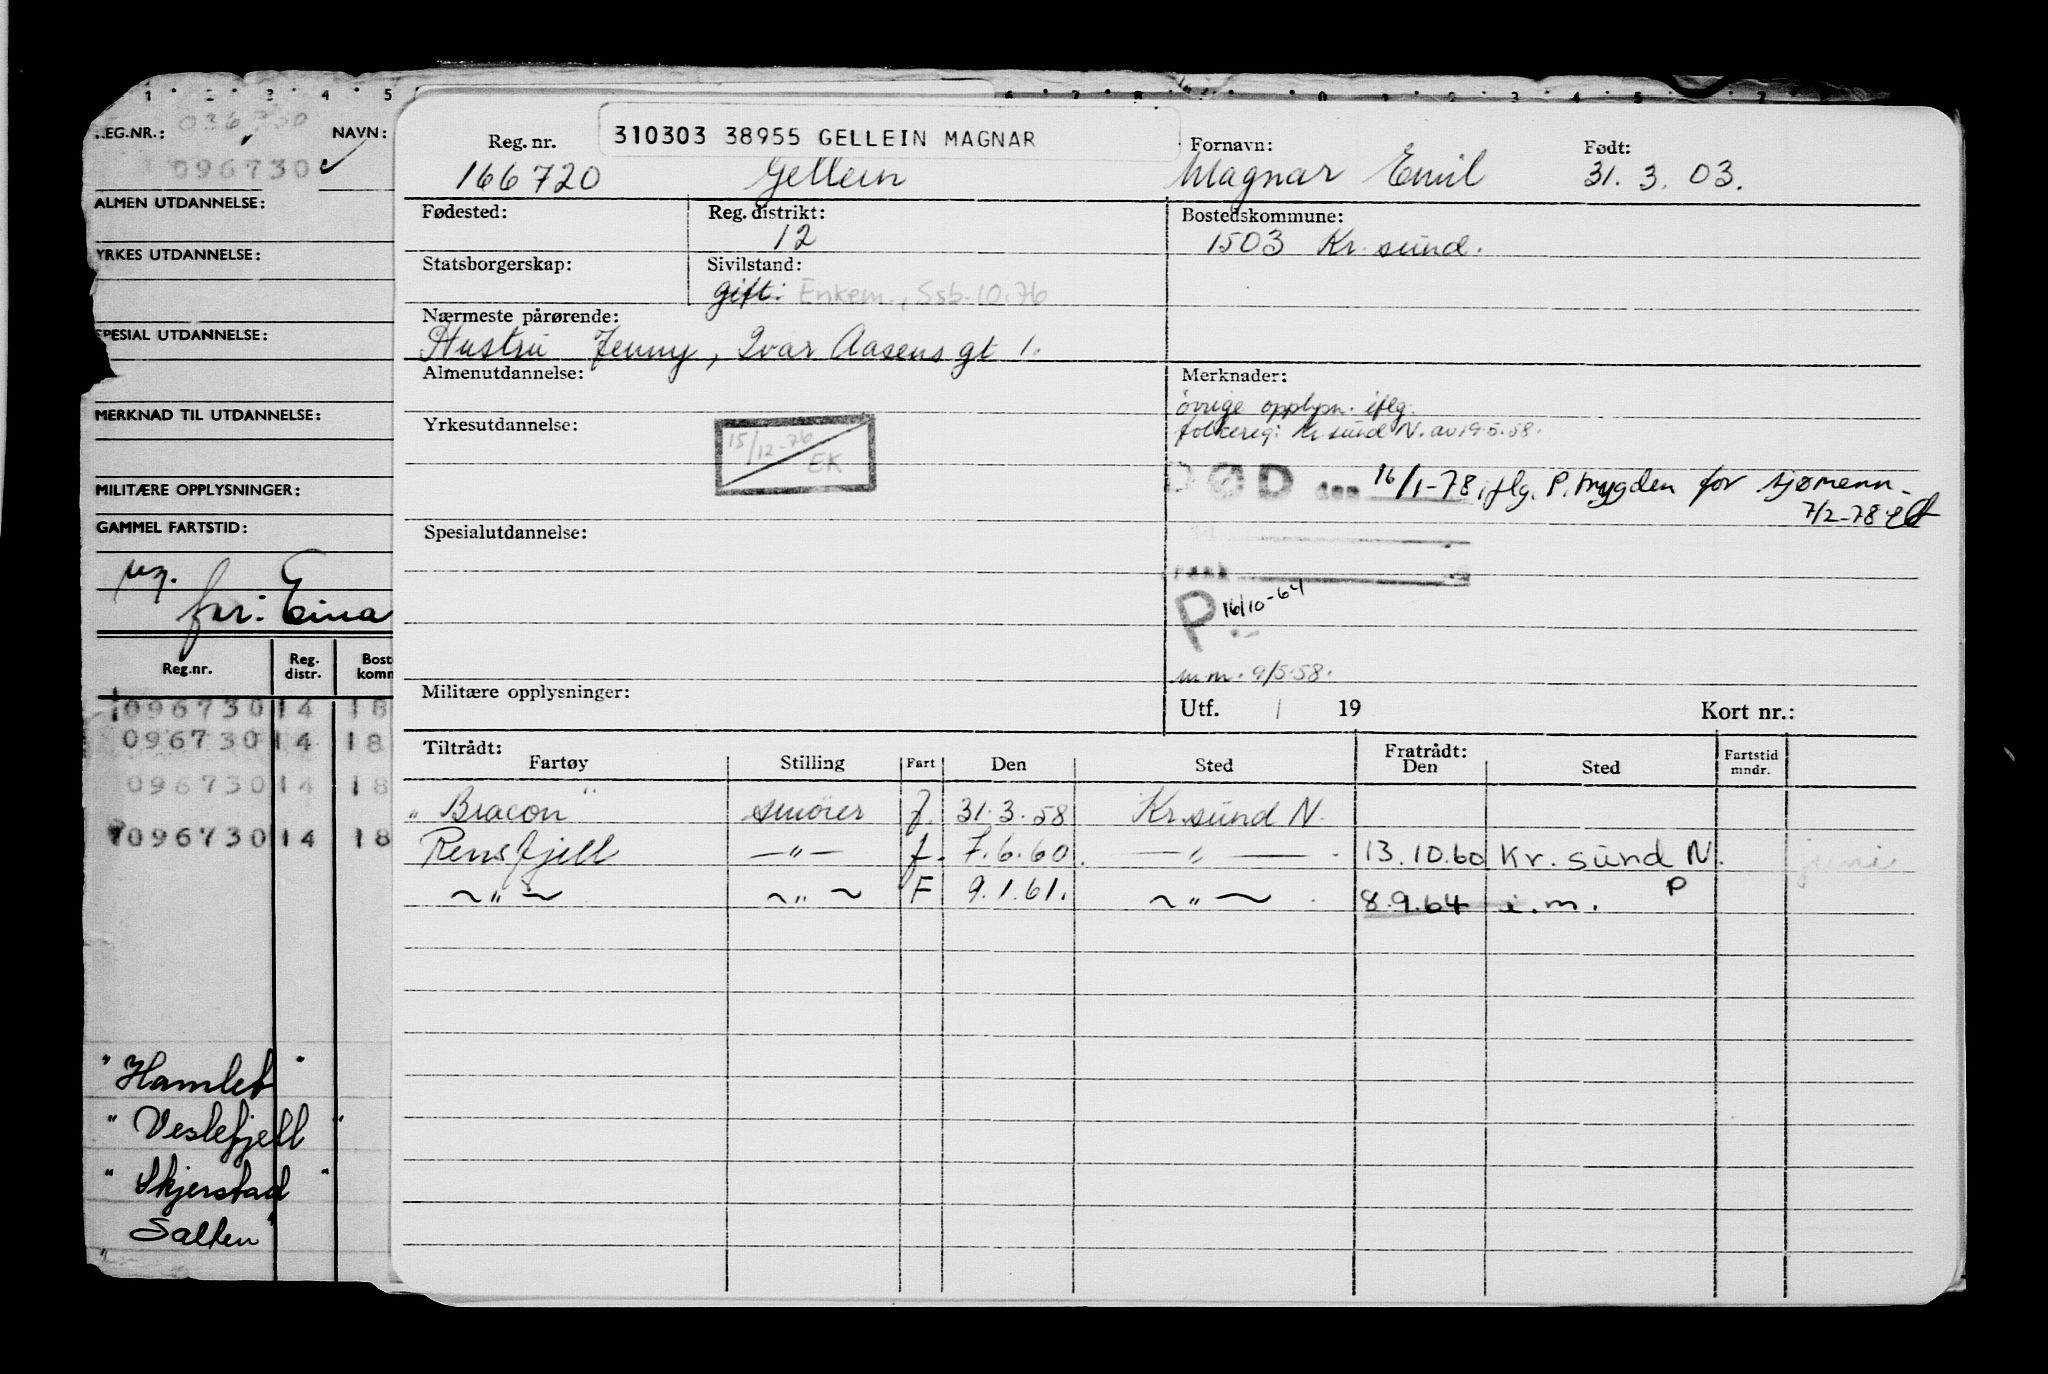 REG.NR.: NAVN:
096730
ALMEN UTDANNELSE:
YRKES UTDANNELSE:
SPESIAL UTDANNELSE:
MERKNAD TIL UTDANNELSE:
MILITÆRE OPPLYSNINGER:
GAMMEL FARTSTID:
far: Eina
Reg.nr. Reg. distr. Bost komm
096730 14 18
096730 14 18
096730 14 18
096730 14 18
"Hamlet"
"Veslefjell"
"Skjerstad"
"Salten"
Reg. nr. 310303 38955 GELLEIN MAGNAR Fornavn: Født:
166720 Gellein Magnar Emil 31.3.03.
Fødested: Reg. distrikt: Bostedskommune:
12 1503 Kr. sund.
Statsborgerskap: Sivilstand:
gift: Enkem., Ssb. 10.76
Nærmeste pårørende:
Hustru Jenny, Ivar Aasens gt 1.
Almenutdannelse: Merknader:
øvrige opplysn. iflg.
folkereg: Kr.sund N. av 19.5.58.
Yrkesutdannelse:
15/12-76
EK
DØD den 16/1-78 iflg. P.trygden for sjømenn-
7/2-78
Spesialutdannelse:
P 16/10-64
m.m. 9/5-58.
Militære opplysninger:
Utf. / 19 Kort nr.:
Tiltrådt: Fratrådt:
Fartøy Stilling Fart Den Sted Den Sted Fartstid mndr.
"Bracon" smører f. 31.3.58 Kr.sund N.
Rensfjell —"— f. 7.6.60. —"— 13.10.60 Kr. sund N. juni
~"~ ~"~ F 9.1.61. ~"~ 8.9.64 i.m. P